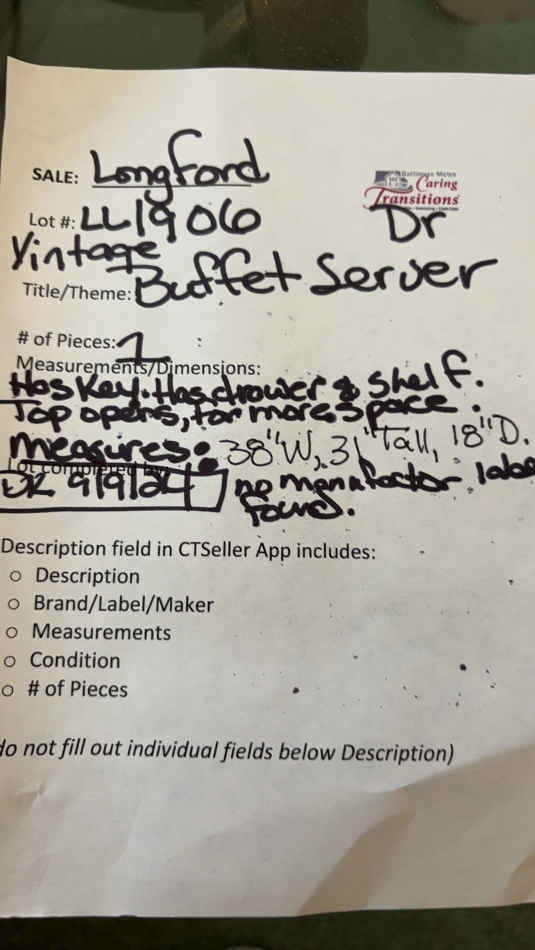 SALE: Longford
Baltimore Metro
Caring
Transitions
Lot #: LL1906
Dr
Vintage
Title/Theme: Buffet Server
# of Pieces: 1
Measurements/Dimensions:
Has Key. Has drawer & Shelf.
Top opens, for more space.
measures. 38"W, 31"Tall, 18"D.
Lot completed by:
DR 9/9/24 no manufactor labe
found.
Description field in CTSeller App includes:
○ Description
○ Brand/Label/Maker
○ Measurements
○ Condition
○ # of Pieces
do not fill out individual fields below Description)